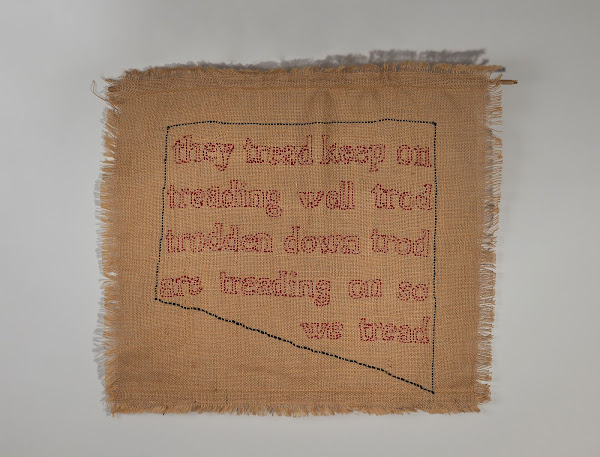 they tread keep on
treading well trod
trodden down trod
are treading on so
we tread